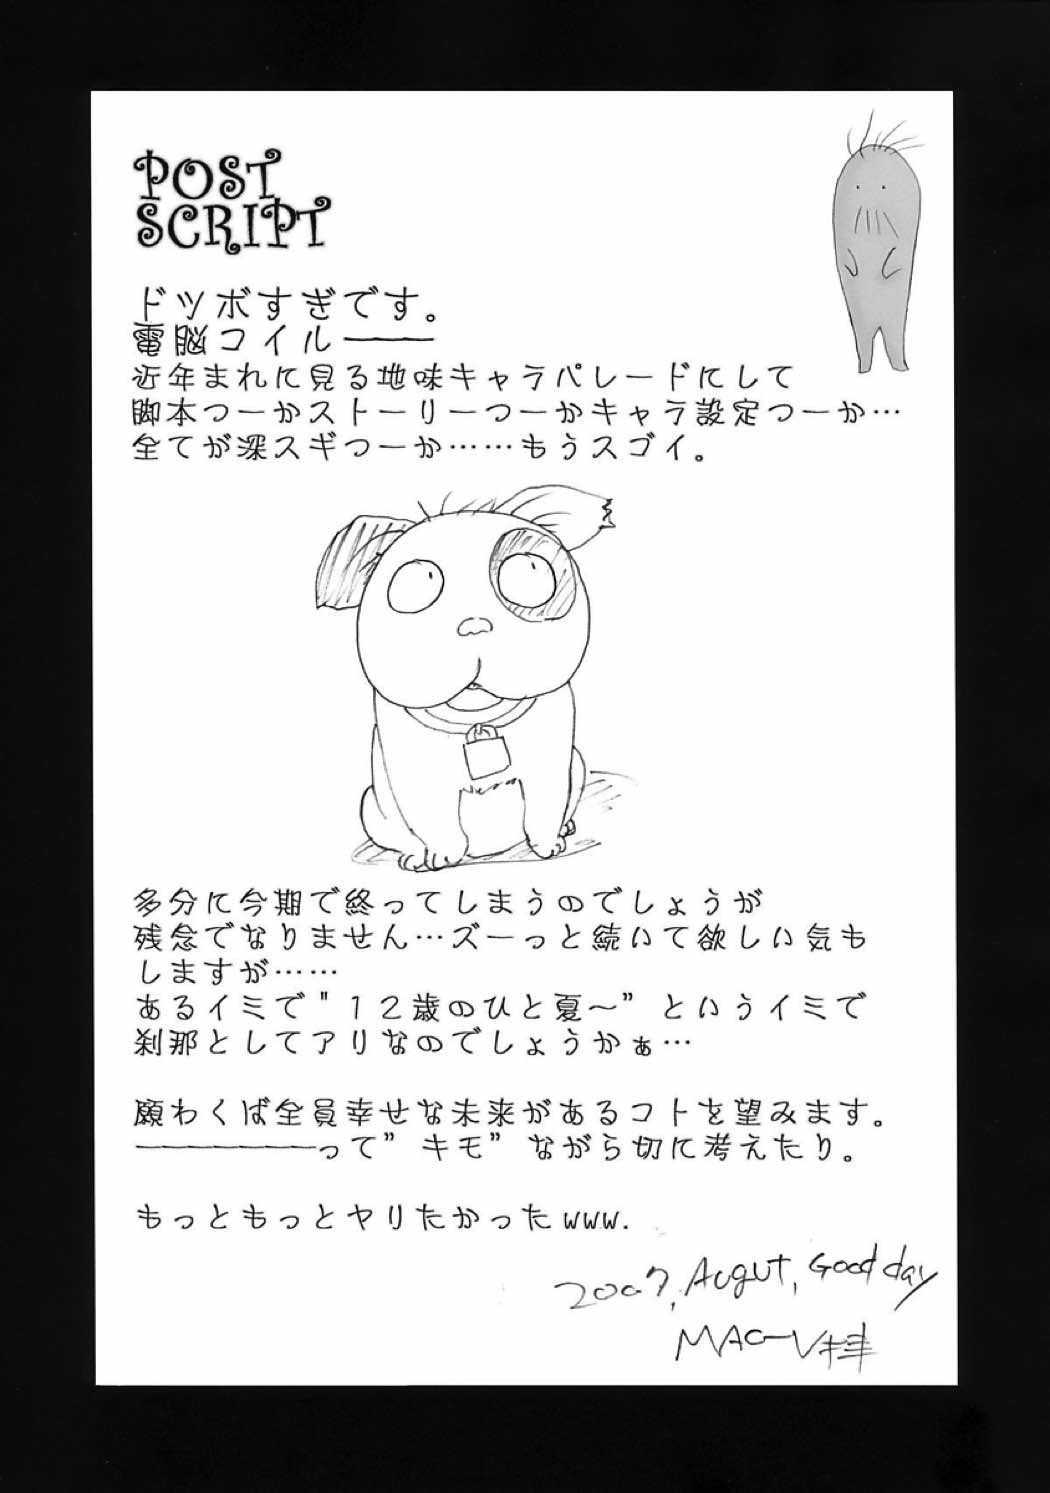 POST
SCRIPT
ドツボすぎです。
電脳コイル———
近年まれに見る地味キャラパレードにして
脚本つーかストーリーつーかキャラ設定つーか…
全てが深スギつーか……もうスゴイ。
多分に今期で終ってしまうのでしょうが
残念でなりません…ズーっと続いて欲しい気も
しますが……
あるイミで"12歳のひと夏～”というイミで
刹那としてアリなのでしょうかぁ…
願わくば全員幸せな未来があるコトを望みます。
——————って”キモ”ながら切に考えたり。
もっともっとヤリたかったwww.
2007, Augut, Good day
MAC-V